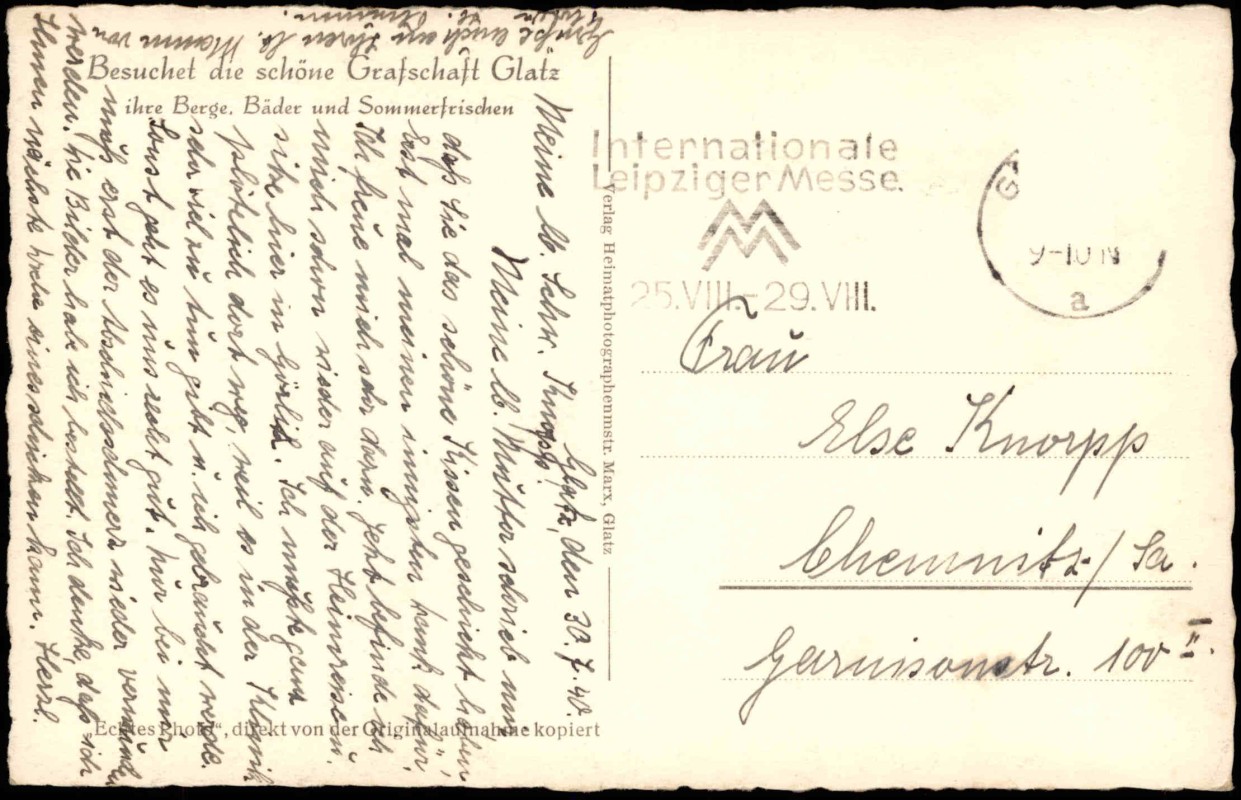 Besuchet die schöne Grafschaft Glatz
ihre Berge, Bäder und Sommerfrischen
Glatz, den 30.7.40.
Meine lb. Schw. Knopp!
Meine lb. Mutter schrieb mir,
daß Sie das schöne Kissen geschickt haben
Erst mal meinen innigsten Dank dafür,
Ich freue mich sehr darin. Jetzt befinde ich
mich schon wieder auf der Heimreise u.
sitze hier in Görlitz. Ich mußte ganz
plötzlich dort weg, weil es in der Klinik
sehr viel zu tun gibt u. ich gebraucht werde.
Sonst geht es uns recht gut. Nur bei mir
muß erst der Abschiedsschmerz wieder
werden. Die Bilder hab ich bestellt. Ich denke, daß ich
Ihnen nächste Woche eines schicken kann. Herzl.
Grüße auch an Ihren lb. Mann von
Verlag Heimatphotographenmstr. Marx, Glatz
„Echtes Photo“, direkt von der Originalaufnahme kopiert
Internationale
Leipziger Messe
MM
25.VIII.-29.VIII.
G
9-10 N
a
Frau
Else Knorpp
Chemnitz/Sa.
Garnisonstr. 100 II.